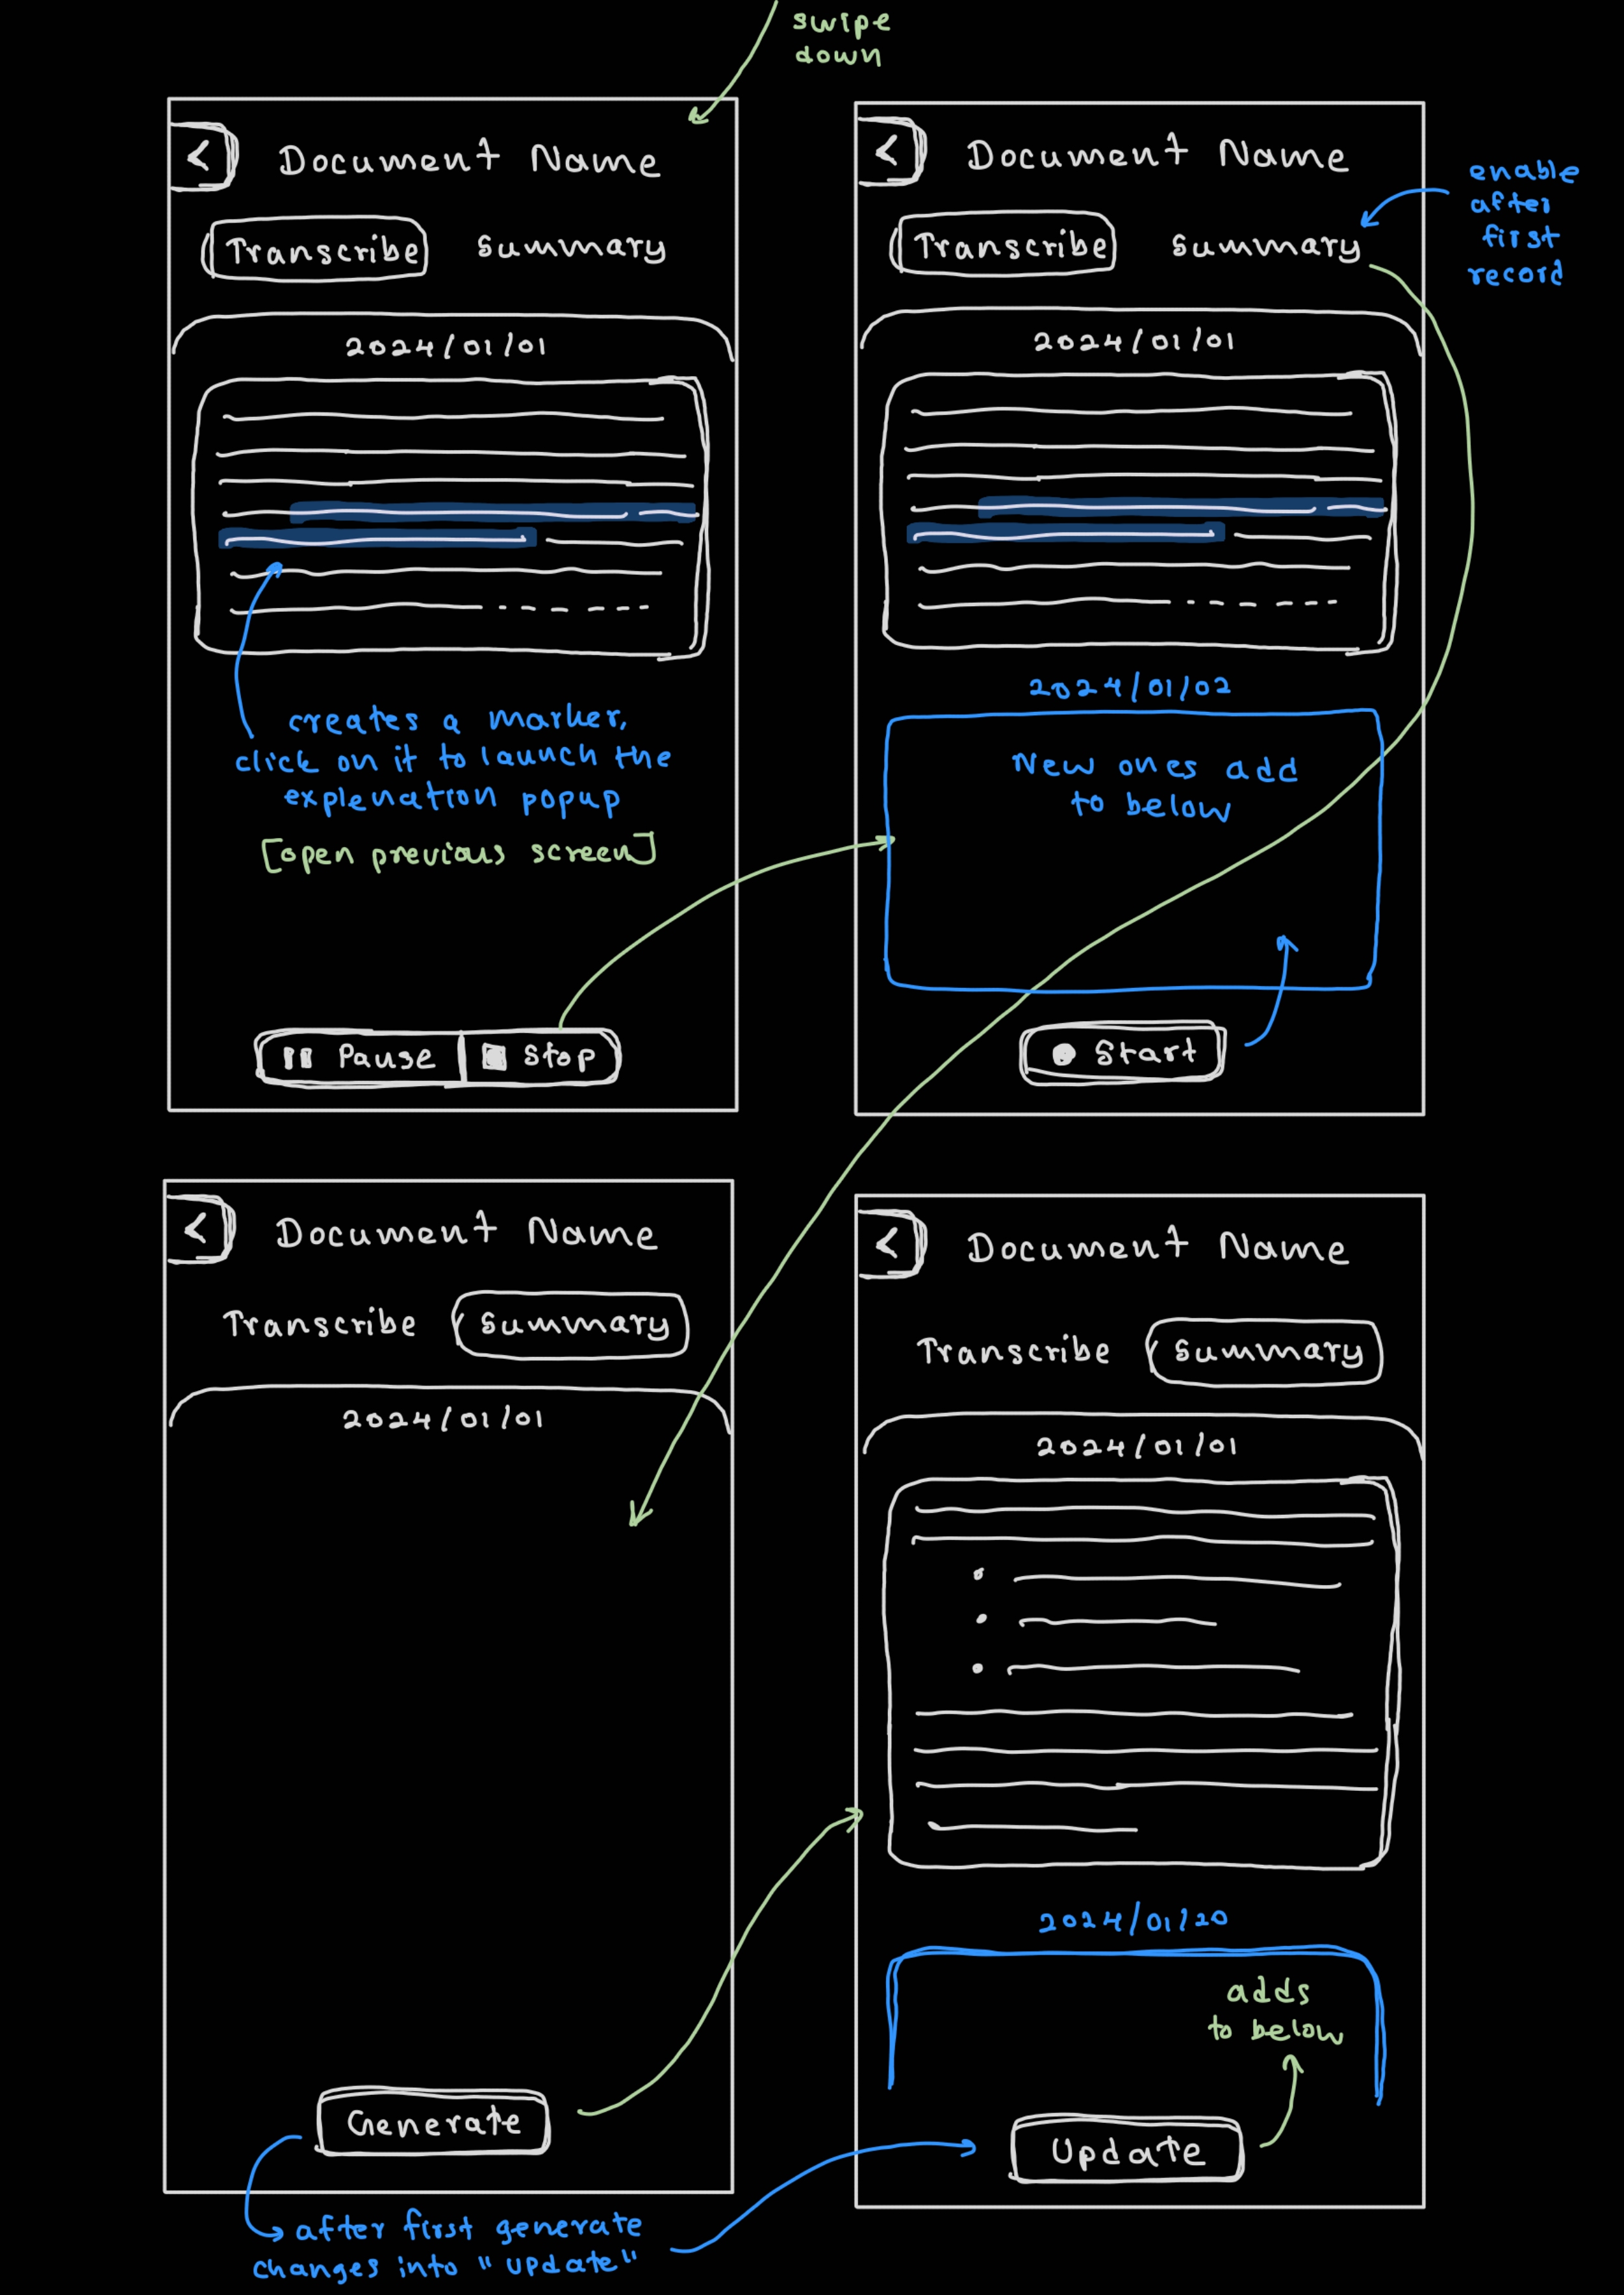 swipe
down
<
Document Name
Transcribe Summary
2024/01/01
creates a marker,
click on it to launch the
explenation popup
[open previous screen]
Pause
Stop
<
Document Name
enable
after
first
record
Transcribe Summary
2024/01/01
2024/01/02
New ones add
to below
Start
<
Document Name
Transcribe Summary
2024/01/01
Generate
after first generate
changes into "update"
<
Document Name
Transcribe Summary
2024/01/01
2024/01/20
adds
to below
Update